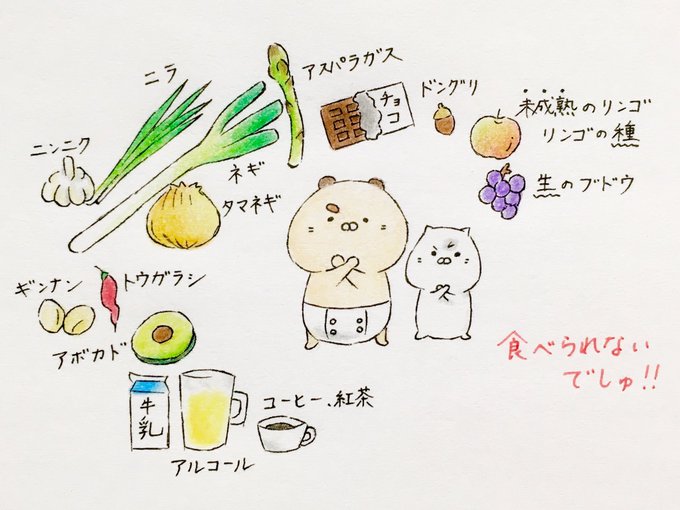 ニラ
アスパラガス
チョコ
ドングリ
未成熟のリンゴ
リンゴの種
ニンニク
ネギ
タマネギ
生のブドウ
ギンナン
トウグラシ
アボカド
牛乳
コーヒー、紅茶
アルコール
食べられない
でしゅ!!